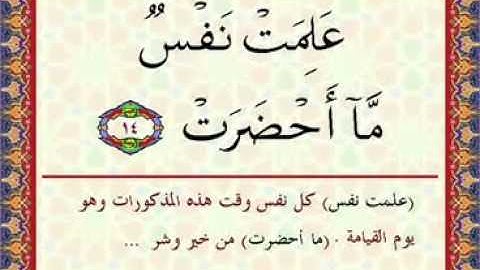 عَلِمَتْ نَفْسٌ
مَّآ أَحْضَرَتْ ١٤
(علمت نفس) كل نفس وقت هذه المذكورات وهو
يوم القيامة . (ما أحضرت) من خير وشر ...